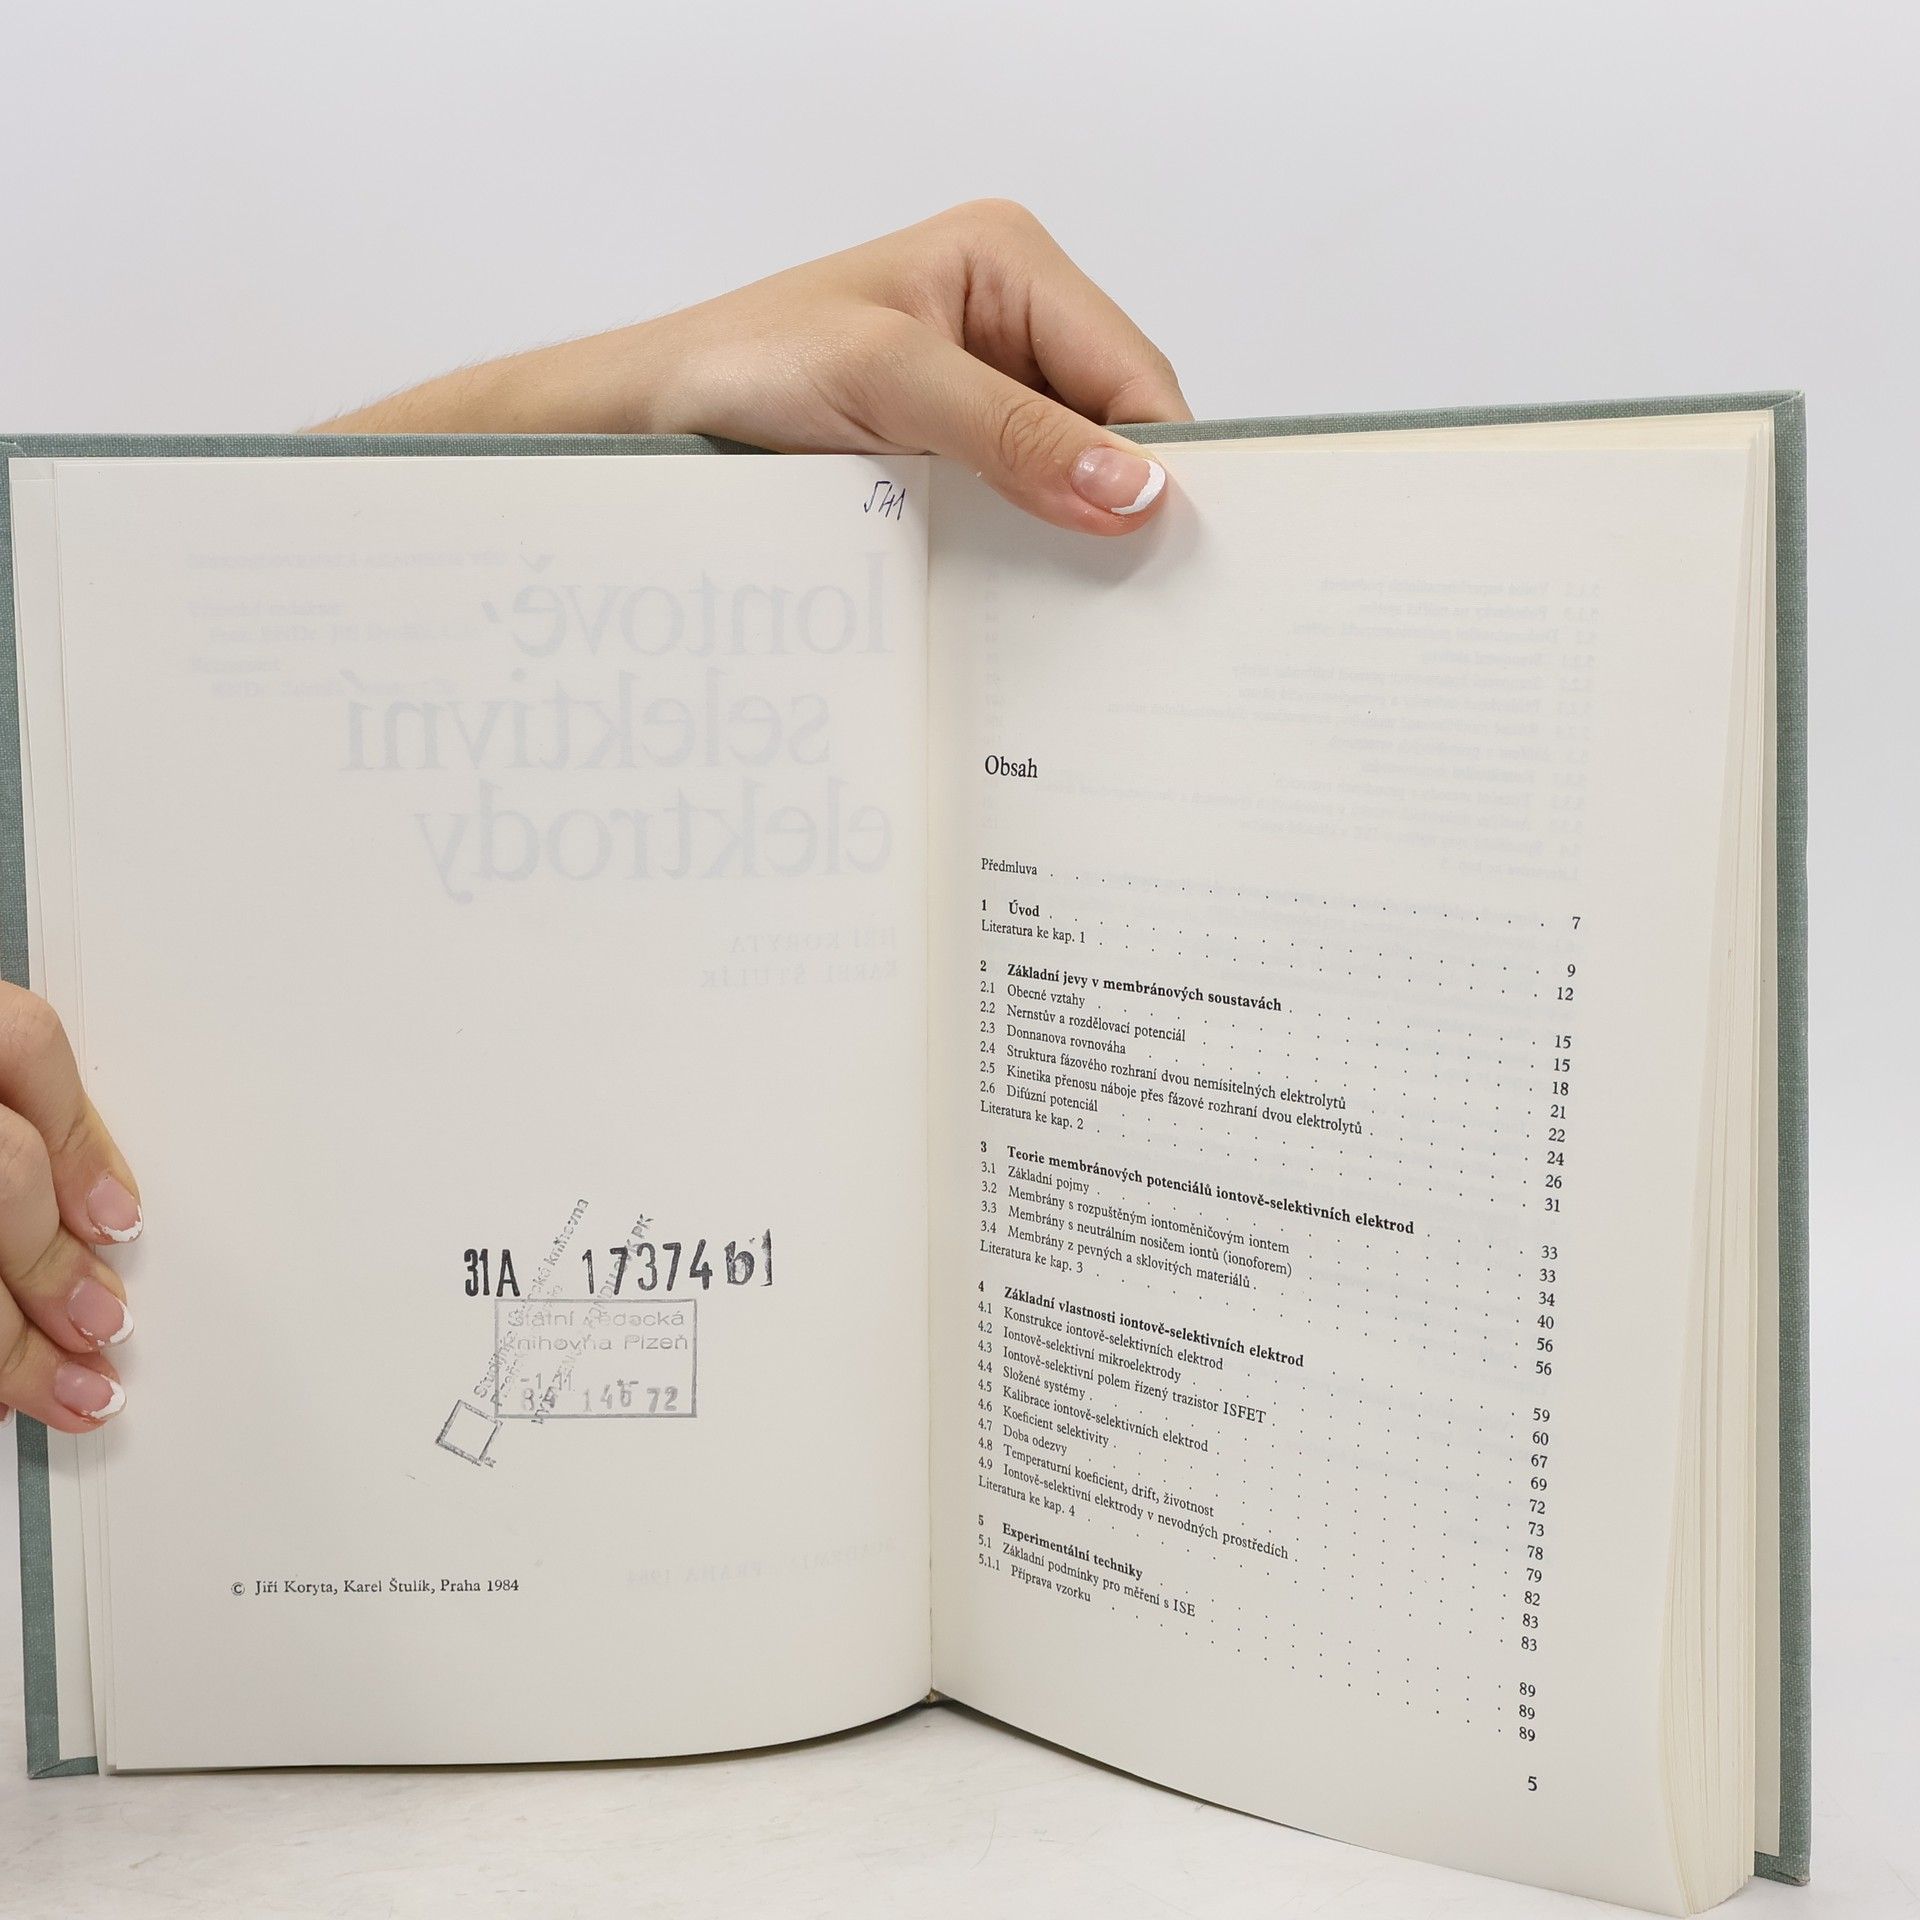 541
31A 17374 bl
Státní vědecká
knihovna Plzeň
146 72
© Jiří Koryta, Karel Štulík, Praha 1984
Obsah
Předmluva 7
1 Úvod 9
Literatura ke kap. 1 12
2 Základní jevy v membránových soustavách 15
2.1 Obecné vztahy 15
2.2 Nernstův a rozdělovací potenciál 18
2.3 Donnanova rovnováha 21
2.4 Struktura fázového rozhraní dvou nemísitelných elektrolytů 22
2.5 Kinetika přenosu náboje přes fázové rozhraní dvou elektrolytů 24
2.6 Difúzní potenciál 26
Literatura ke kap. 2 31
3 Teorie membránových potenciálů iontově-selektivních elektrod 33
3.1 Základní pojmy 33
3.2 Membrány s rozpuštěným iontoměničovým iontem 34
3.3 Membrány s neutrálním nosičem iontů (ionoforem) 40
3.4 Membrány z pevných a sklovitých materiálů 56
Literatura ke kap. 3 56
4 Základní vlastnosti iontově-selektivních elektrod 59
4.1 Konstrukce iontově-selektivních elektrod 60
4.2 Iontově-selektivní mikroelektrody 67
4.3 Iontově-selektivní polem řízený trazistor ISFET 69
4.4 Složené systémy 72
4.5 Kalibrace iontově-selektivních elektrod 73
4.6 Koeficient selektivity 78
4.7 Doba odezvy 79
4.8 Temperaturní koeficient, drift, životnost 82
4.9 Iontově-selektivní elektrody v nevodných prostředích 83
Literatura ke kap. 4 83
5 Experimentální techniky 89
5.1 Základní podmínky pro měření s ISE 89
5.1.1 Příprava vzorku 89
5